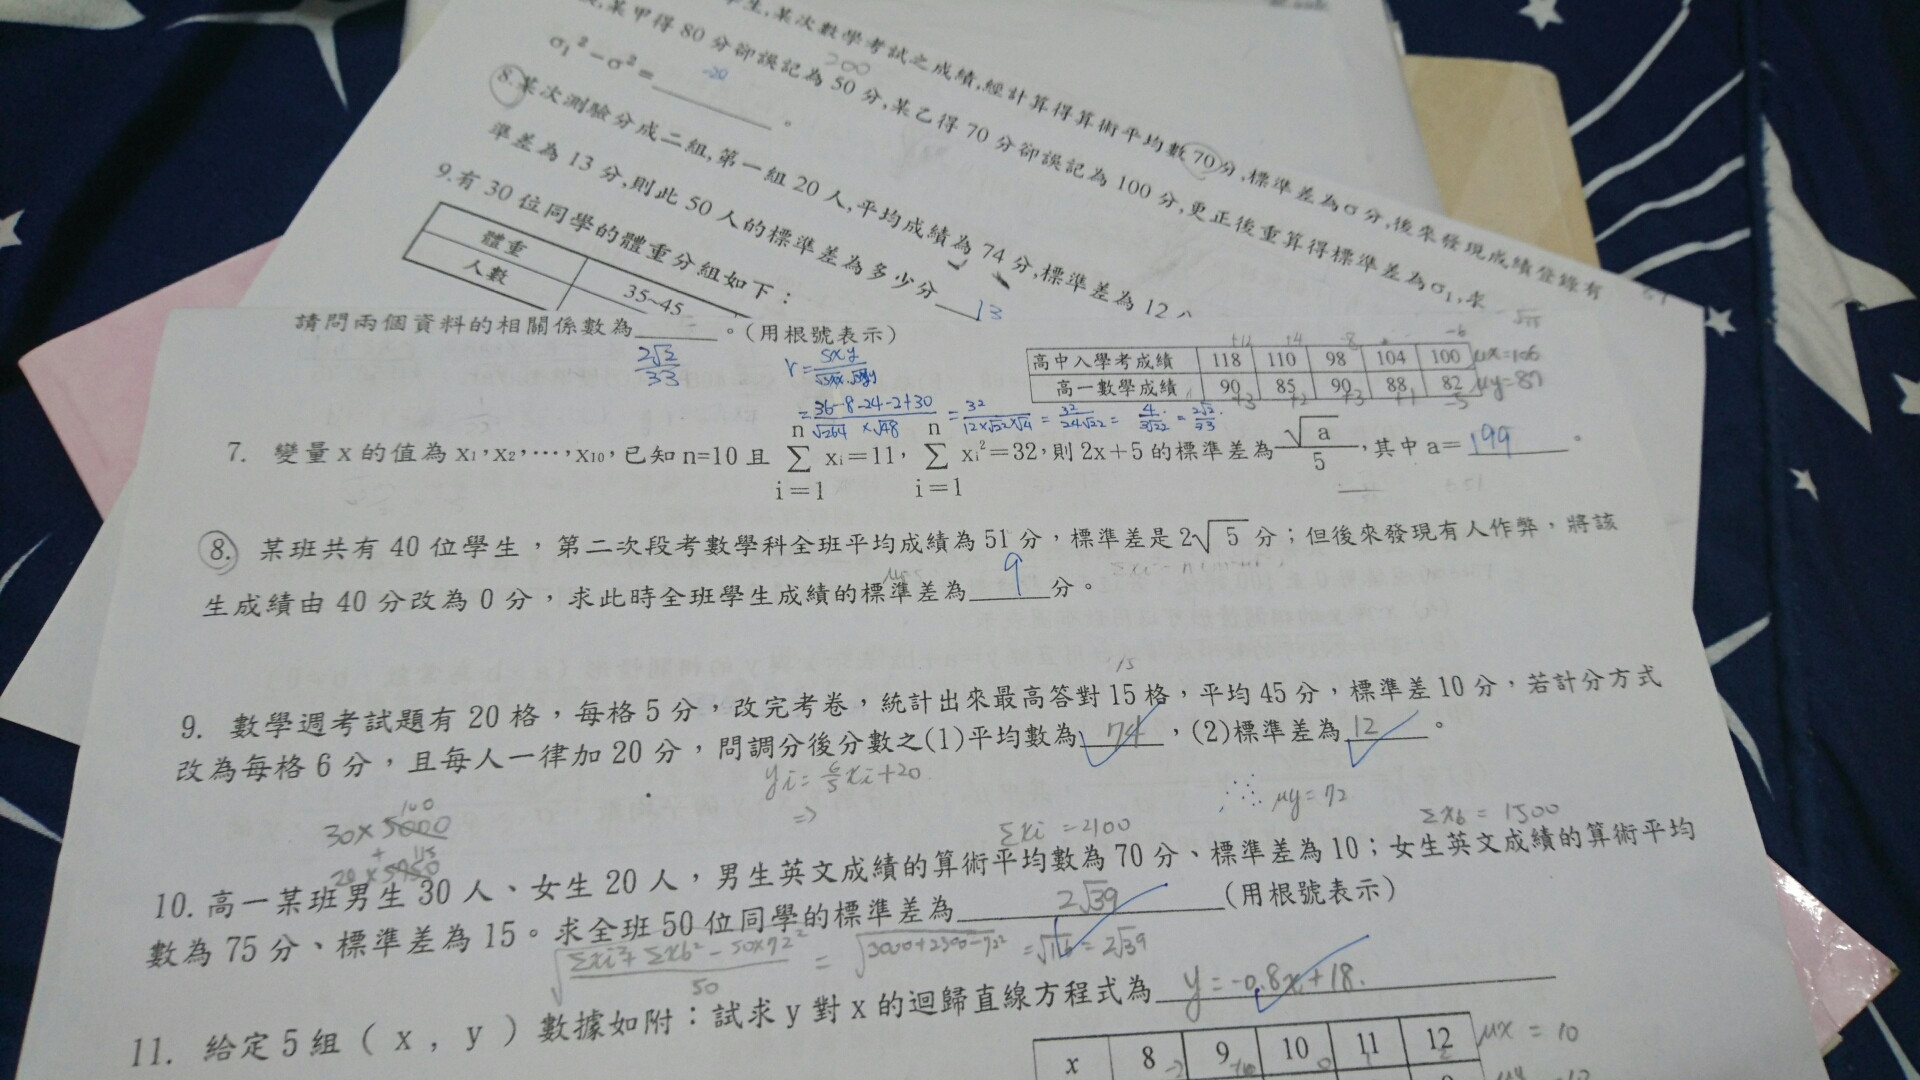 生,某次數學考試之成績,經計算得算術平均數70分,標準差為σ分,後來發現成績登錄有
某甲得80分卻誤記為50分,某乙得70分卻誤記為100分,更正後重算得標準差為σ₁,求
200
σ₁²-σ²=______。
-20
8.某次測驗分成二組,第一組20人,平均成績為74分,標準差為12
準差為13分,則此50人的標準差為多少分 13
9.有30位同學的體重分組如下:
體重 35~45
人數
請問兩個資料的相關係數為______。(用根號表示)
2√2/33
高中入學考成績 118 110 98 104 100 μx=106
高一數學成績 90 85 90 88 82 μy=87
+3 +2 +3 +1 -5
7. 變量x的值為x₁,x₂,⋯,x₁₀,已知n=10且 n∑i=1 xᵢ=11, n∑i=1 xᵢ²=32,則2x+5的標準差為√a/5,其中a=199。
⑧. 某班共有40位學生,第二次段考數學科全班平均成績為51分,標準差是2√5分;但後來發現有人作弊,將該
生成績由40分改為0分,求此時全班學生成績的標準差為 9 分。
15
9. 數學週考試題有20格,每格5分,改完考卷,統計出來最高答對15格,平均45分,標準差10分,若計分方式
改為每格6分,且每人一律加20分,問調分後分數之(1)平均數為 74 ,(2)標準差為 12 。
yi=6/5xi+20
⇒
∴ μy=72
30×5000 100
20×5850 115
Σxi=2100
Σx6=1500
10. 高一某班男生30人、女生20人,男生英文成績的算術平均數為70分、標準差為10;女生英文成績的算術平均
數為75分、標準差為15。求全班50位同學的標準差為 2√39 (用根號表示)
√(Σxi²+Σx6²-50×72²/50) = √(3000+2300-72²) = √116 = 2√39
11. 給定5組(x,y)數據如附:試求y對x的迴歸直線方程式為 y=-0.8x+18.
x 8 9 10 11 12 μx=10